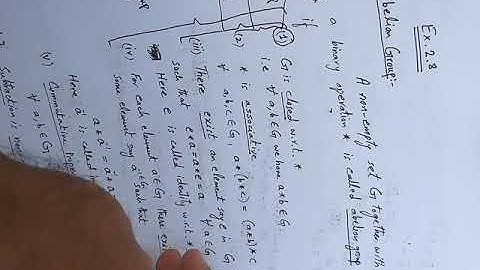 Ex. 2.8
belian Group:-
A non-empty set G together with
a binary operation * is called abelian group
if
(i) G is closed w.r.t. *
i.e ∀ a,b ∈ G we have a*b ∈ G
(ii) * is associative
∀ a,b,c ∈ G, a*(b*c) = (a*b)*c
(iii) There exist an element say e in G
such that e*a=a*e=a ∀ a∈G
Here e is called identity w.r.t. *
(iv) For each element a∈G there exi
some element say a' ∈ G such that
a*a' = a'
Here a' is called
(v) Commutative
∀ a,b∈G
Subtraction is